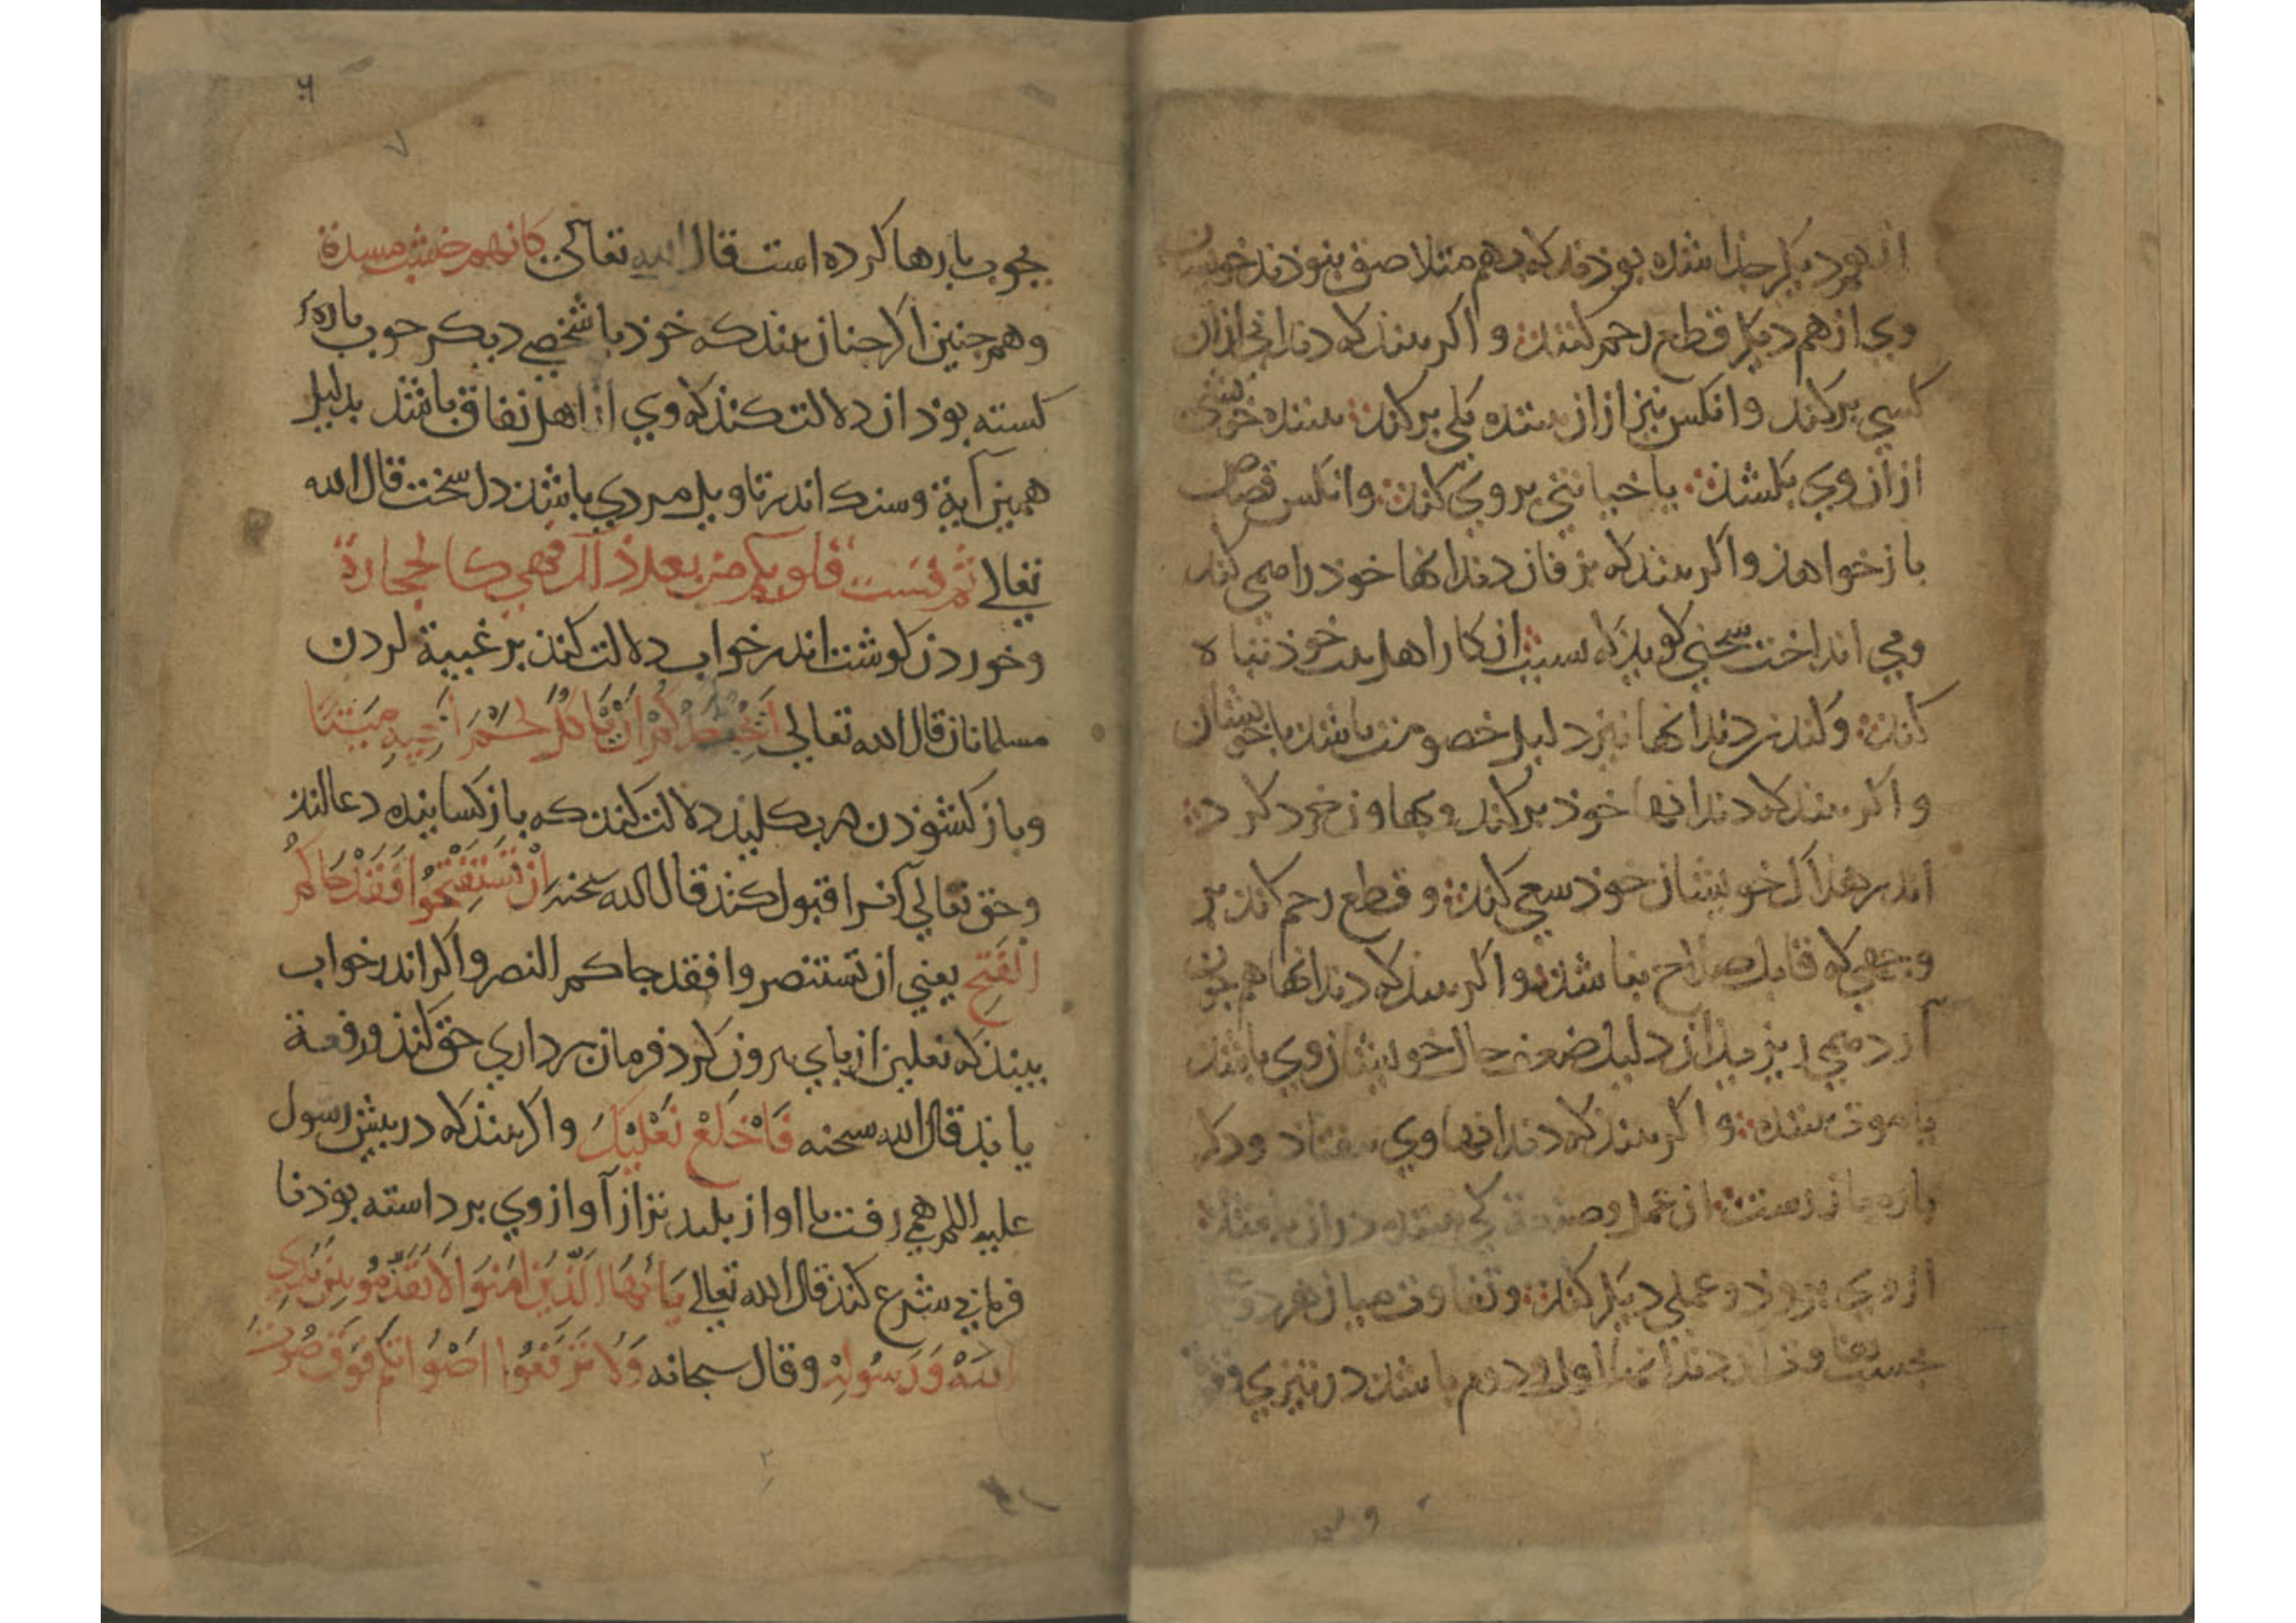 از یکدیگر جذا شذه بوذند که بهم متلاصق نبوذند خویشان
وی از هم دیگر قطع رحم کنند و اکر بیند که دندانی ازان
کسی برکند وانکس نیز ازان بیننده یکی برکند بیننده خویشی
ازان وی بکشد یا خیانتی بر وی کند وانکس قصاص
باز خواهد واکر بیند که بزفان دندانها خوذ را می کند
ومی انداخت سخنی کوید که بسبب ان کار اهل بیت خوذ تباه
کند و کندن دندانها نیز دلیل خصومت باشد با خویشان
واکر بیند که دندانها خوذ برکند وبها و زخرد کرد
اندر هلاک خویشان خوذ سعی کند و قطع رحم کند بر
وجهی که قابل صلاح نباشد واکر بیند که دندانها هم جون
آرد می ریزید ان دلیل ضعف حال خویشان وی باشد
یا موت بیننده واکر بیند که دندانها وی بیفتاد ودکر
باره باز رست ان عمل وصنعت کی بیننده دران باشد
از وی برود وعملی دیکر کند و تفاوت میان هردو
بحسب تفاوت آن دندانها اول ودوم باشد در تیزی وقوة
٦
٧
بجوب بارها کرده است قال الله تعالی کانهم خشب مسندة
وهم جنین اکر جنان بیند که خوذ با شخصی دیکر جوب باره
کسته بوذ ان دلالت کند که وی از اهل نفاق باشد بدلیل
همین آیة وسنک اندر تاویل مردی باشد دل سخت قال الله
تعالی ثم قست قلوبکم من بعد ذالک فهی کالحجارة
وخوردن کوشت اندر خواب دلالت کند بر غیبة کردن
مسلمانان قال الله تعالی اَیُحِبُّ اَحَدُکُمْ اَنْ یَأکُلَ لَحْمَ اَخِیهِ مَیْتًا
وباز کشوذن در بکلید دلالت کند که باز کسا بنده دعا کند
وحق تعالی آنرا قبول کند قال الله سبحنه اِنْ تَسْتَفْتِحُوا فَقَدْ جَاکُمُ
الْفَتْحُ یعنی ان تستنصروا فقد جاکم النصر واکر اندر خواب
بیند که نعلین از پای بیرون کرد فرمان برداری حق کند ورفعة
یابد قال الله سبحنه فَاخْلَعْ نَعْلَیْکَ واکر بیند که در بیش رسول
علیه السلم همی رفت یا اواز بلند تر از آواز وی برداسته بوذ نا
فرمانی شرع کند قال الله تعالی یَا أَیُّهَا الَّذِینَ اٰمَنُوا لَا تُقَدِّمُو بَیْنَ یَدَیِ
اللَّهِ وَرَسُولِهِ وقال سبحانه وَلَا تَرْفَعُوا اَصْوَاتَکُمْ فَوْقَ صَوْتِ
٢